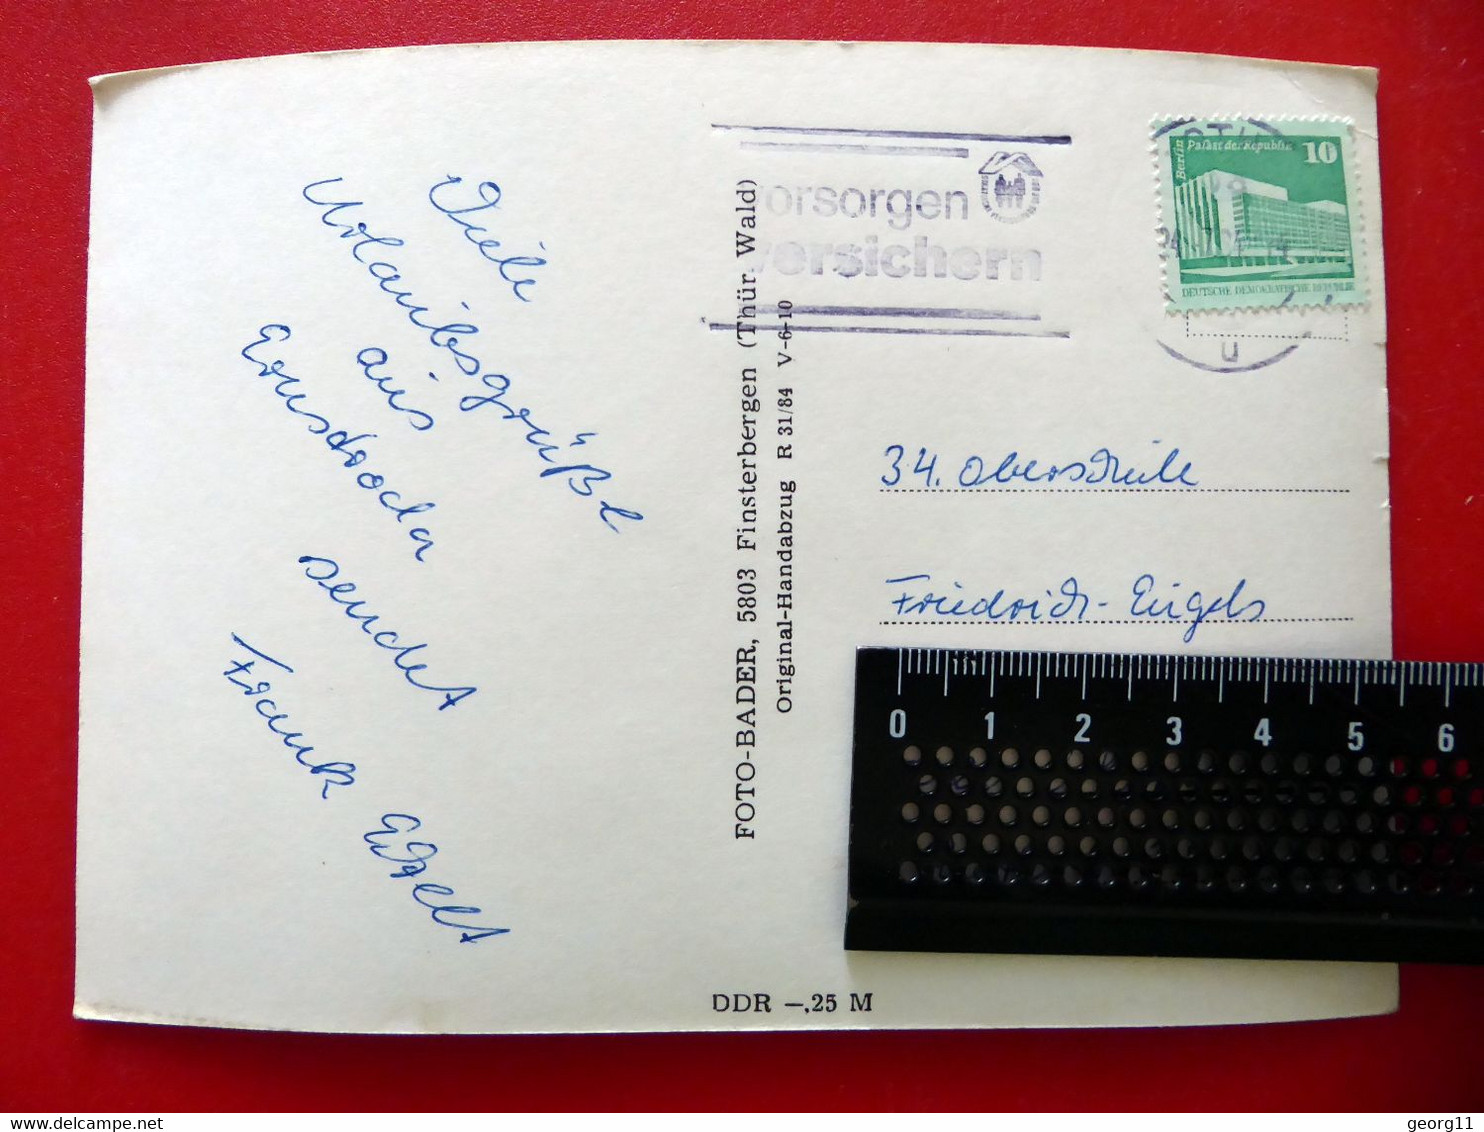 Viele
Urlaubsgrüße
aus
Ernstroda
sendet
Frank
FOTO-BADER, 5803 Finsterbergen (Thür. Wald)
Original-Handabzug R 31/84 V-6-10
DDR —,25 M
vorsorgen
versichern
Berlin
Palast der Republik
10
DEUTSCHE DEMOKRATISCHE REPUBLIK
u
34. Oberschule
Friedrich-Engels
0 1 2 3 4 5 6
delcampe.net
georg11